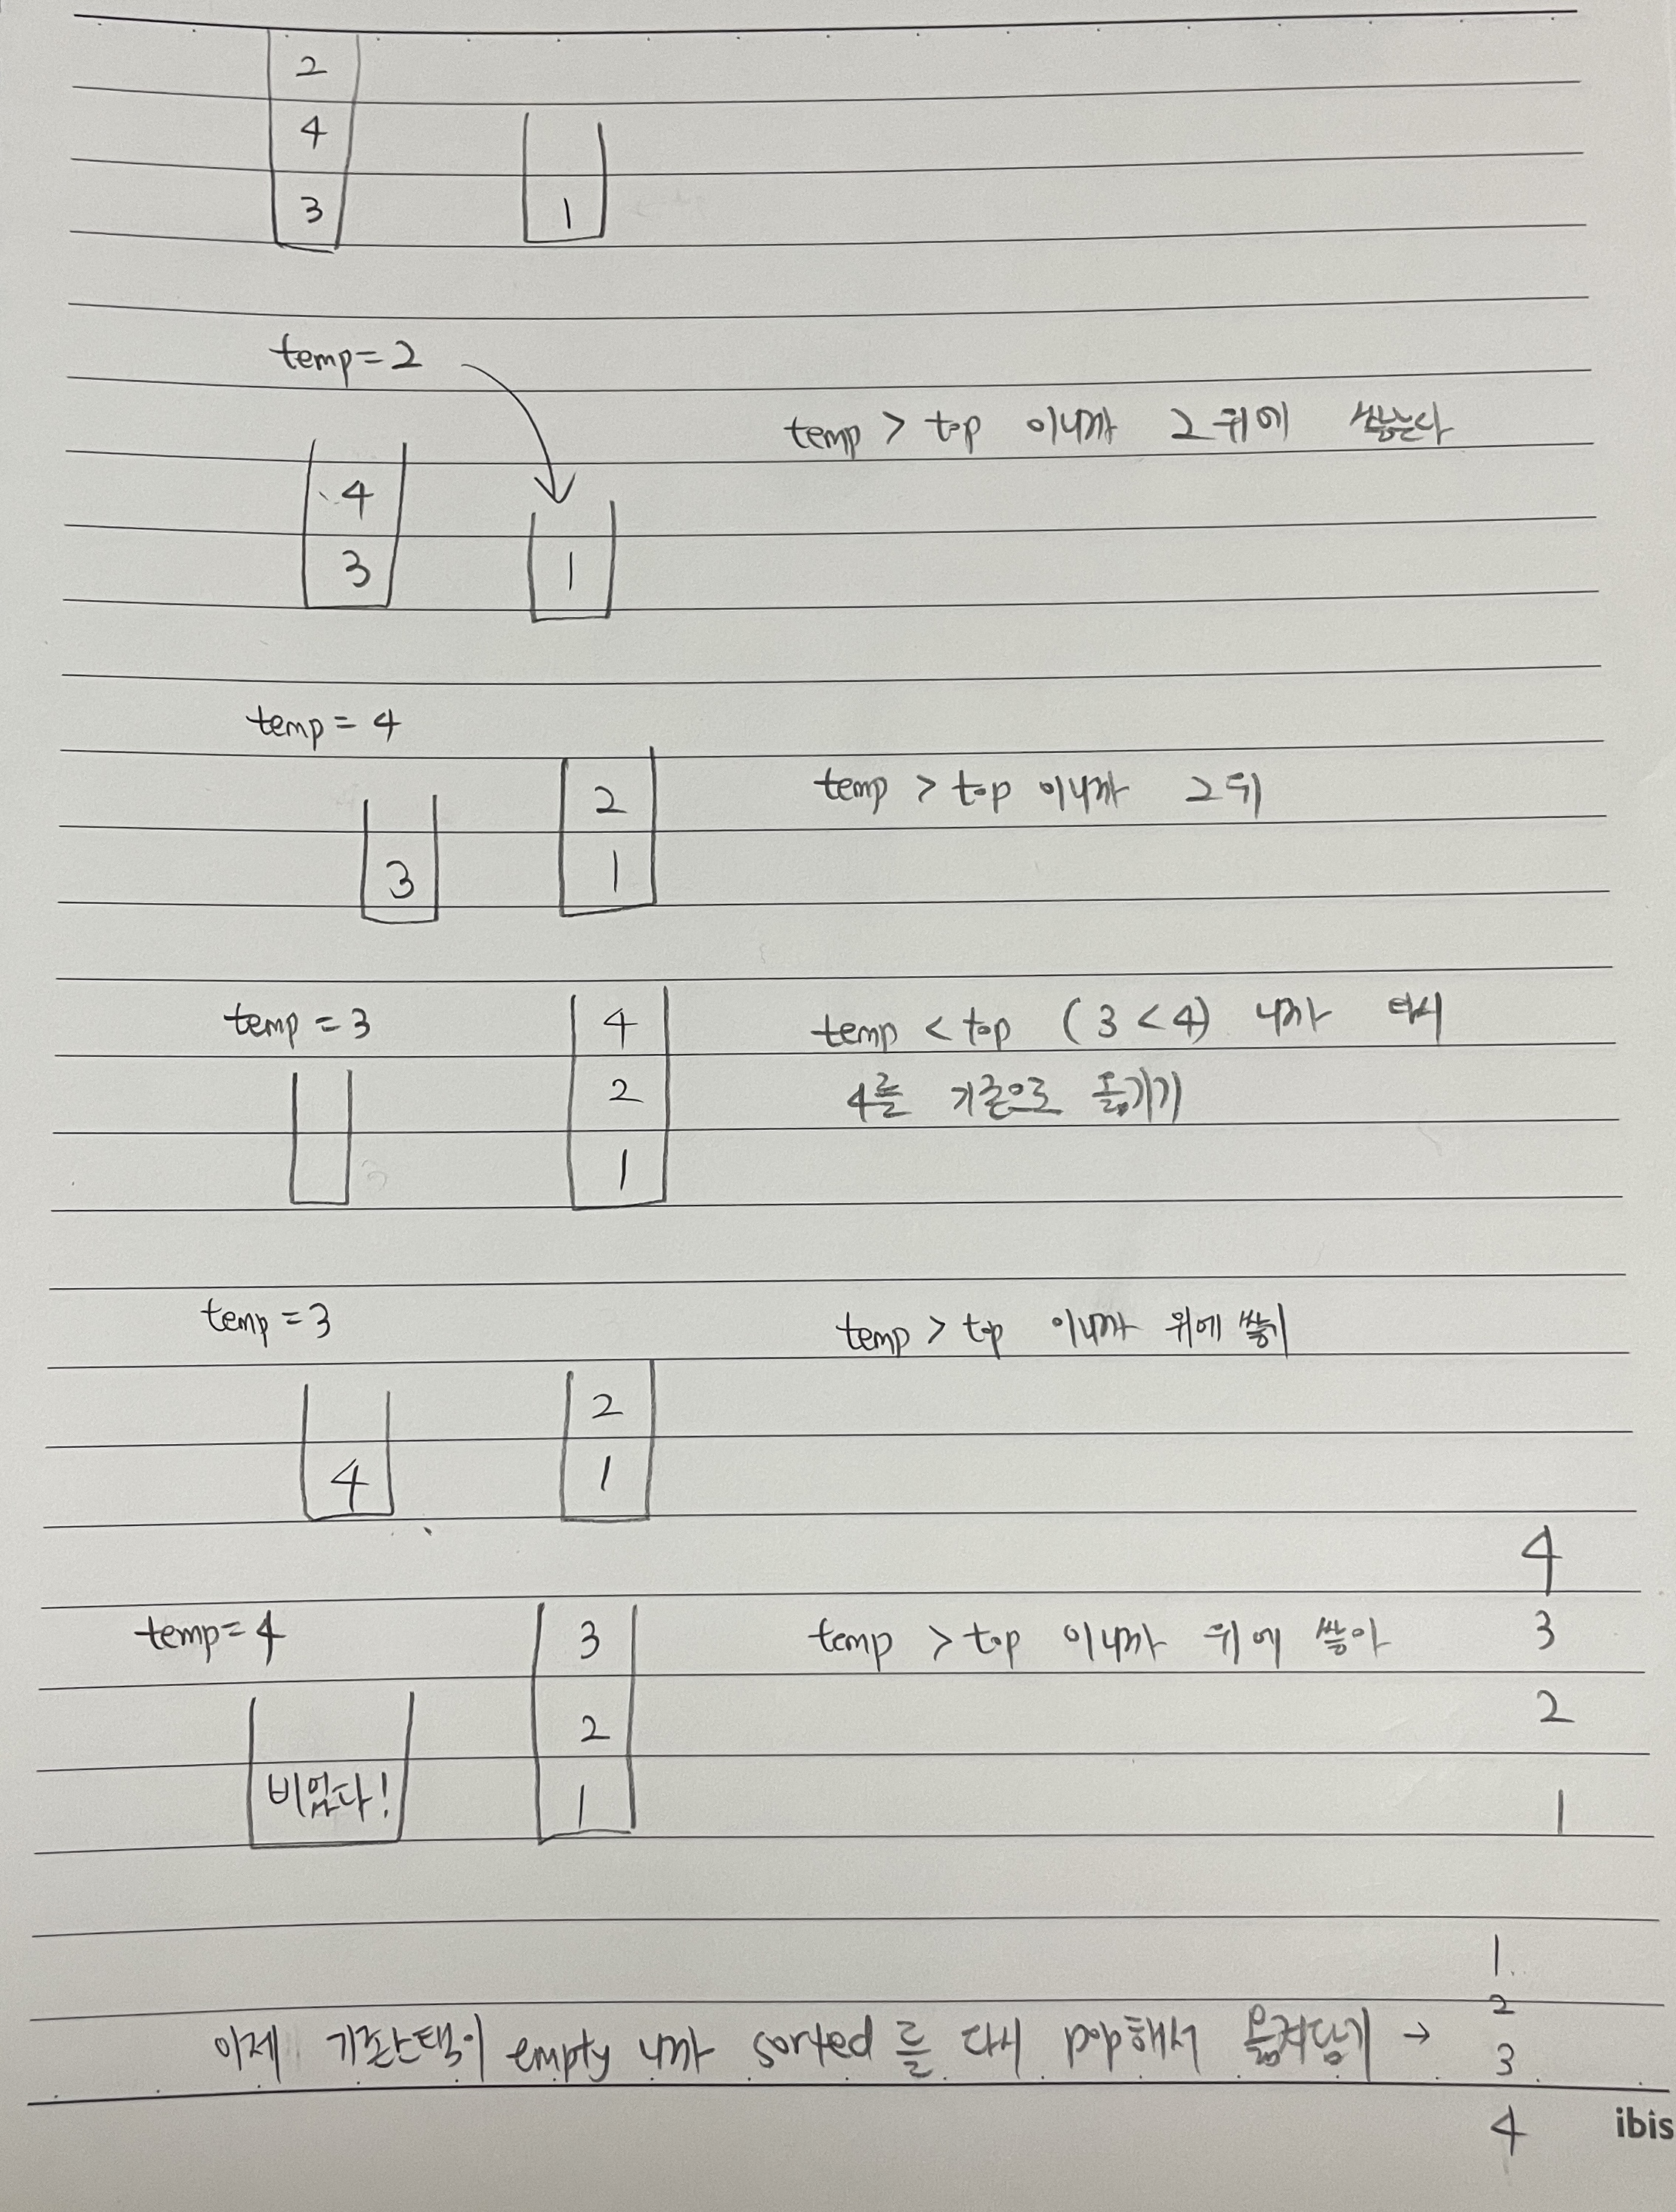 2
4
3 1
temp = 2
temp > top 이니까 2위에 쌓는다
4
3 1
temp = 4
temp > top 이니까 2위
2
3 1
temp = 3
temp < top (3 < 4) 니까 다시
4를 기존으로 옮기기
4
2
1
temp = 3
temp > top 이니까 위에 쌓기
2
4 1
temp = 4
temp > top 이니까 위에 쌓아
3
2
비었다! 1
4
3
2
1
이제 기존스택이 empty 니까 sorted 를 다시 pop해서 옮겨담기 →
1
2
3
4
ibis